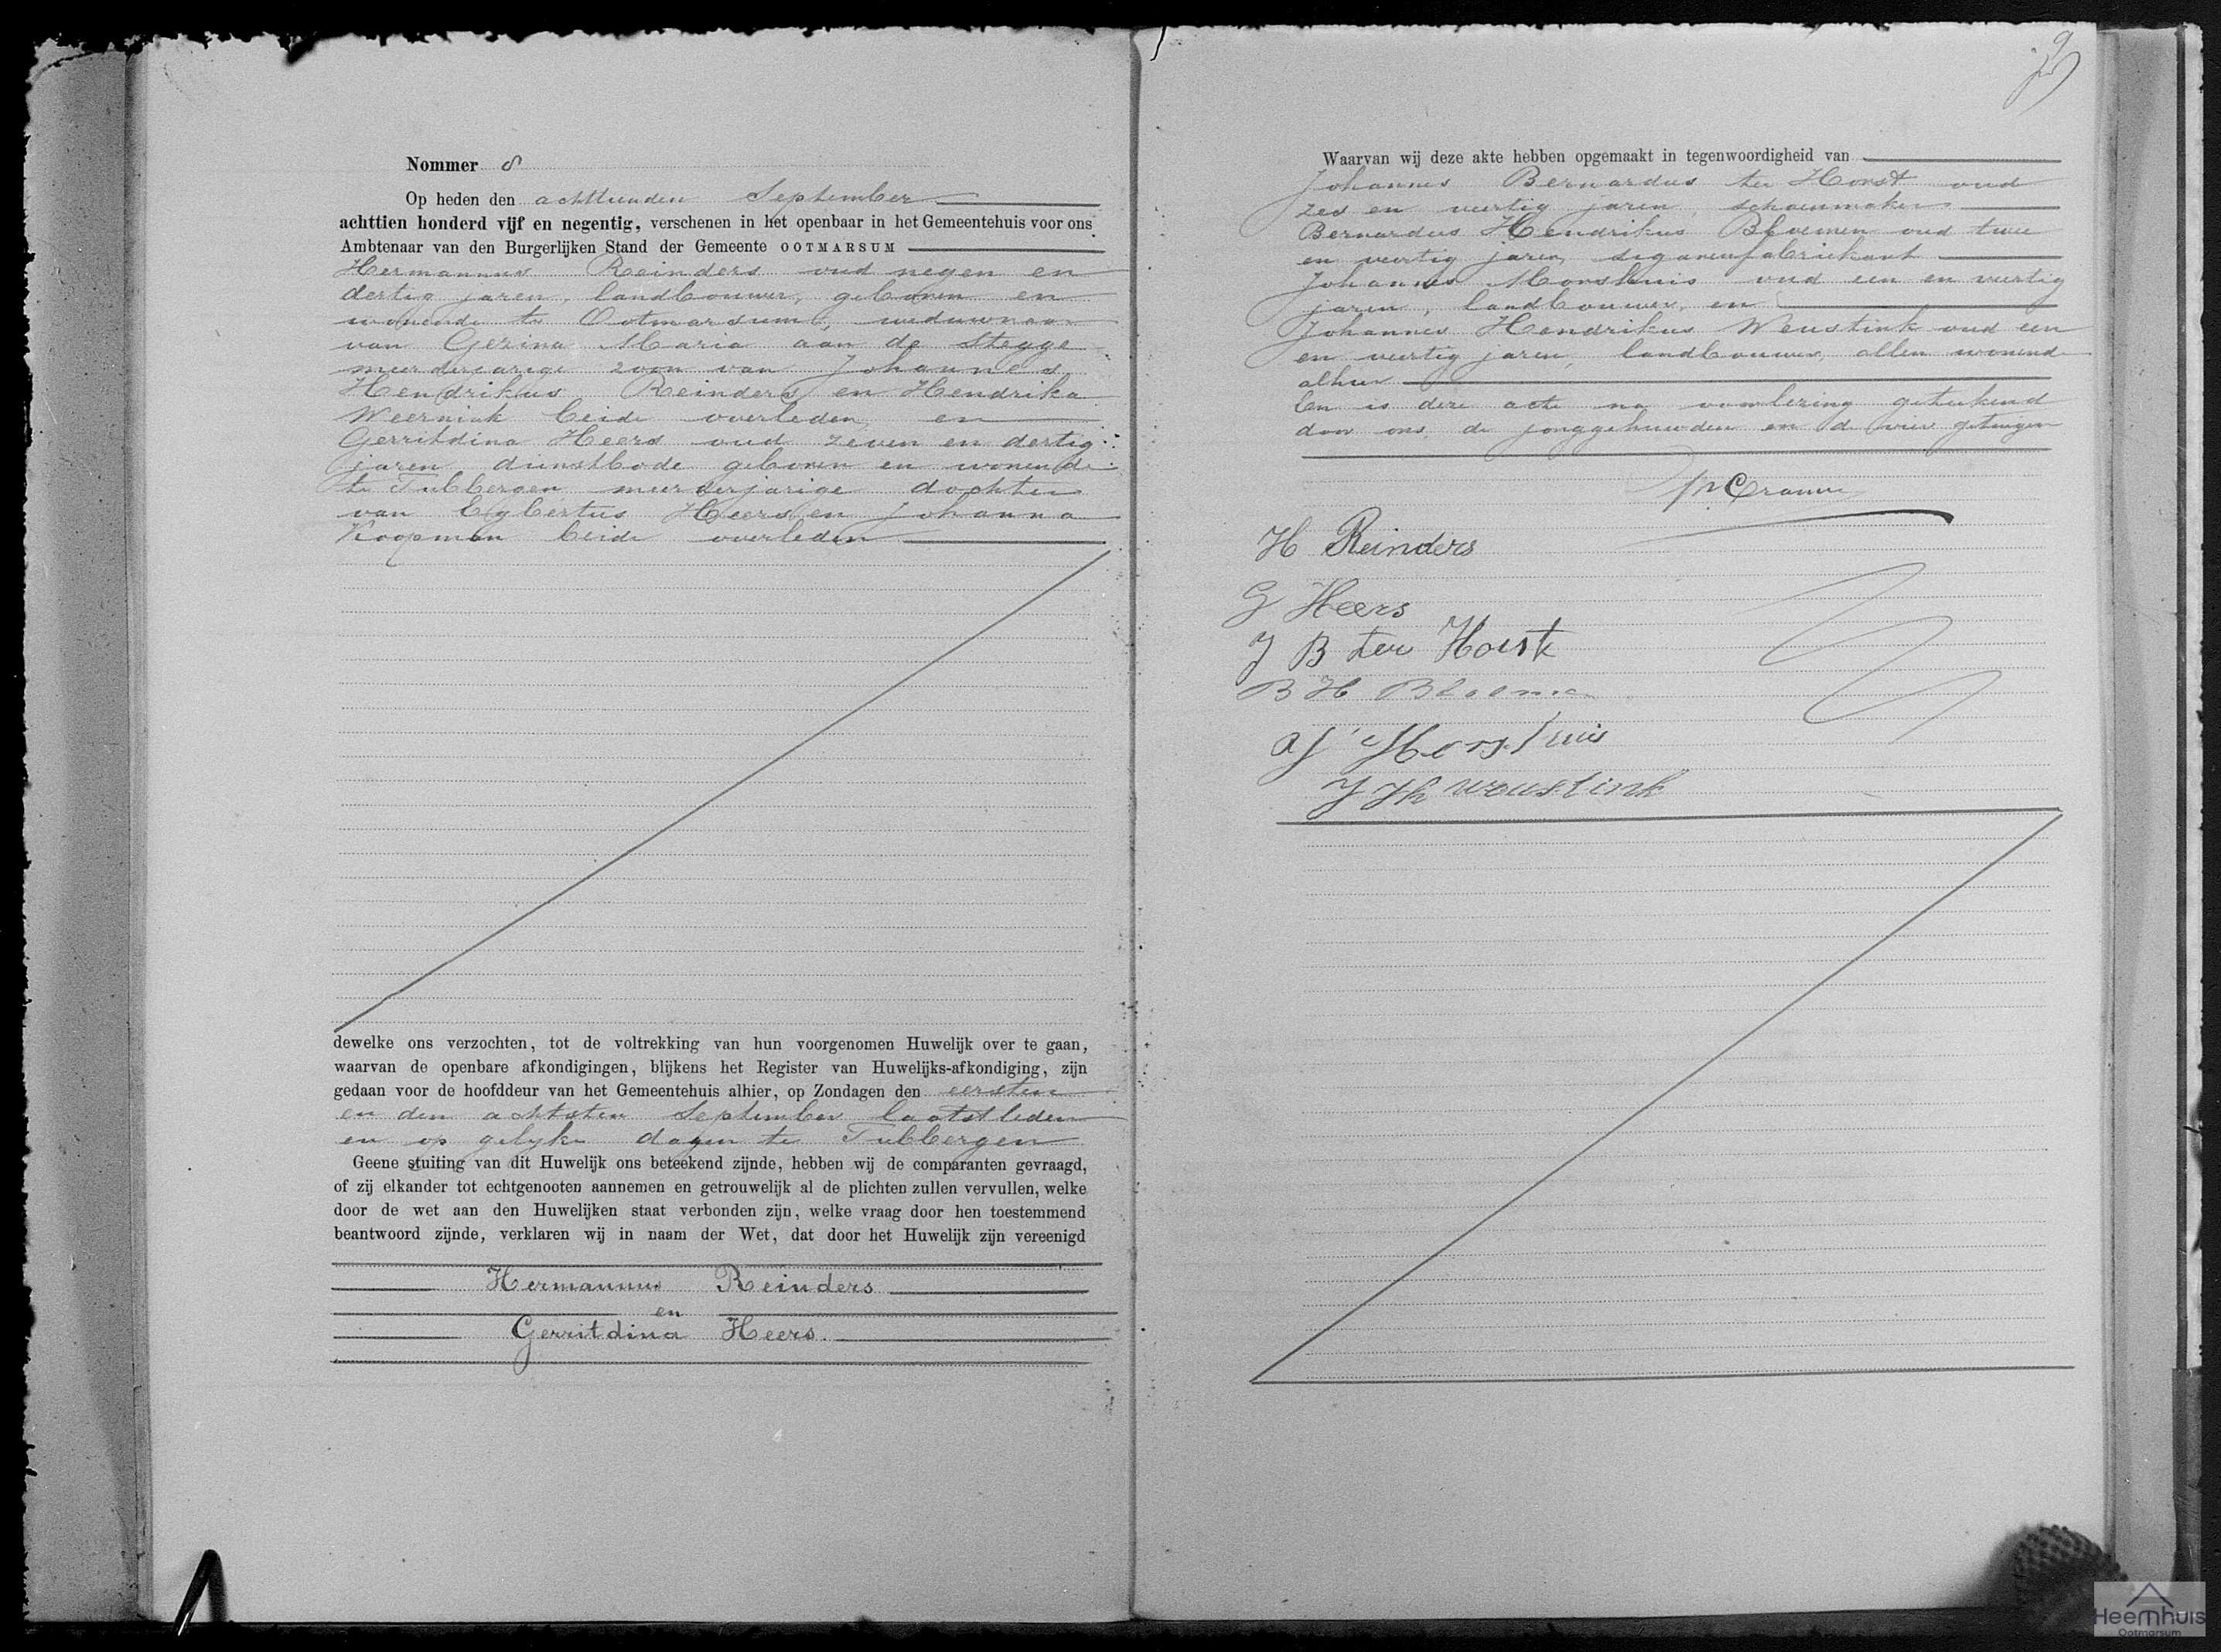 Nommer 8
Op heden den achttienden September
achttien honderd vijf en negentig, verschenen in het openbaar in het Gemeentehuis voor ons
Ambtenaar van den Burgerlijken Stand der Gemeente OOTMARSUM
Hermannus Reinders oud negen en
dertig jaren, landbouwer, geboren en
wonende te Ootmarsum, weduwnaar
van Gezina Maria aan de Stegge
meerderjarige zoon van Johannes
Hendrikus Reinders en Hendrika
Weernink beide overleden, en
Gerritdina Heers oud zeven en dertig
jaren, dienstbode geboren en wonende
te Tubbergen, meerderjarige dochter
van Egbertus Heers en Johanna
Koopman beide overleden
dewelke ons verzochten, tot de voltrekking van hun voorgenomen Huwelijk over te gaan,
waarvan de openbare afkondigingen, blijkens het Register van Huwelijks-afkondiging, zijn
gedaan voor de hoofddeur van het Gemeentehuis alhier, op Zondagen den eersten
en den achtsten September laatstleden
en op gelyke dagen te Tubbergen
Geene stuiting van dit Huwelijk ons beteekend zijnde, hebben wij de comparanten gevraagd,
of zij elkander tot echtgenooten aannemen en getrouwelijk al de plichten zullen vervullen, welke
door de wet aan den Huwelijken staat verbonden zijn, welke vraag door hen toestemmend
beantwoord zijnde, verklaren wij in naam der Wet, dat door het Huwelijk zijn vereenigd
Hermannus Reinders
en
Gerritdina Heers.
9
Waarvan wij deze akte hebben opgemaakt in tegenwoordigheid van
Johannes Bernardus ter Horst oud
zes en veertig jaren, schoenmaker
Bernardus Hendrikus Bloemen oud twee
en veertig jaren, sigarenfabriekant
Johannes Morshuis oud een en veertig
jaren, landbouwer, en
Johannes Hendrikus Weustink oud een
en veertig jaren, landbouwer, allen wonende
alhier
En is deze acte na voorlezing geteekend
door ons, de jonggehuwden en de vier getuigen
Cramer
H Reinders
G Heers
J B ter Horst
B H Bloemen
Morshuis
J H Weustink
Heemhuis
Ootmarsum